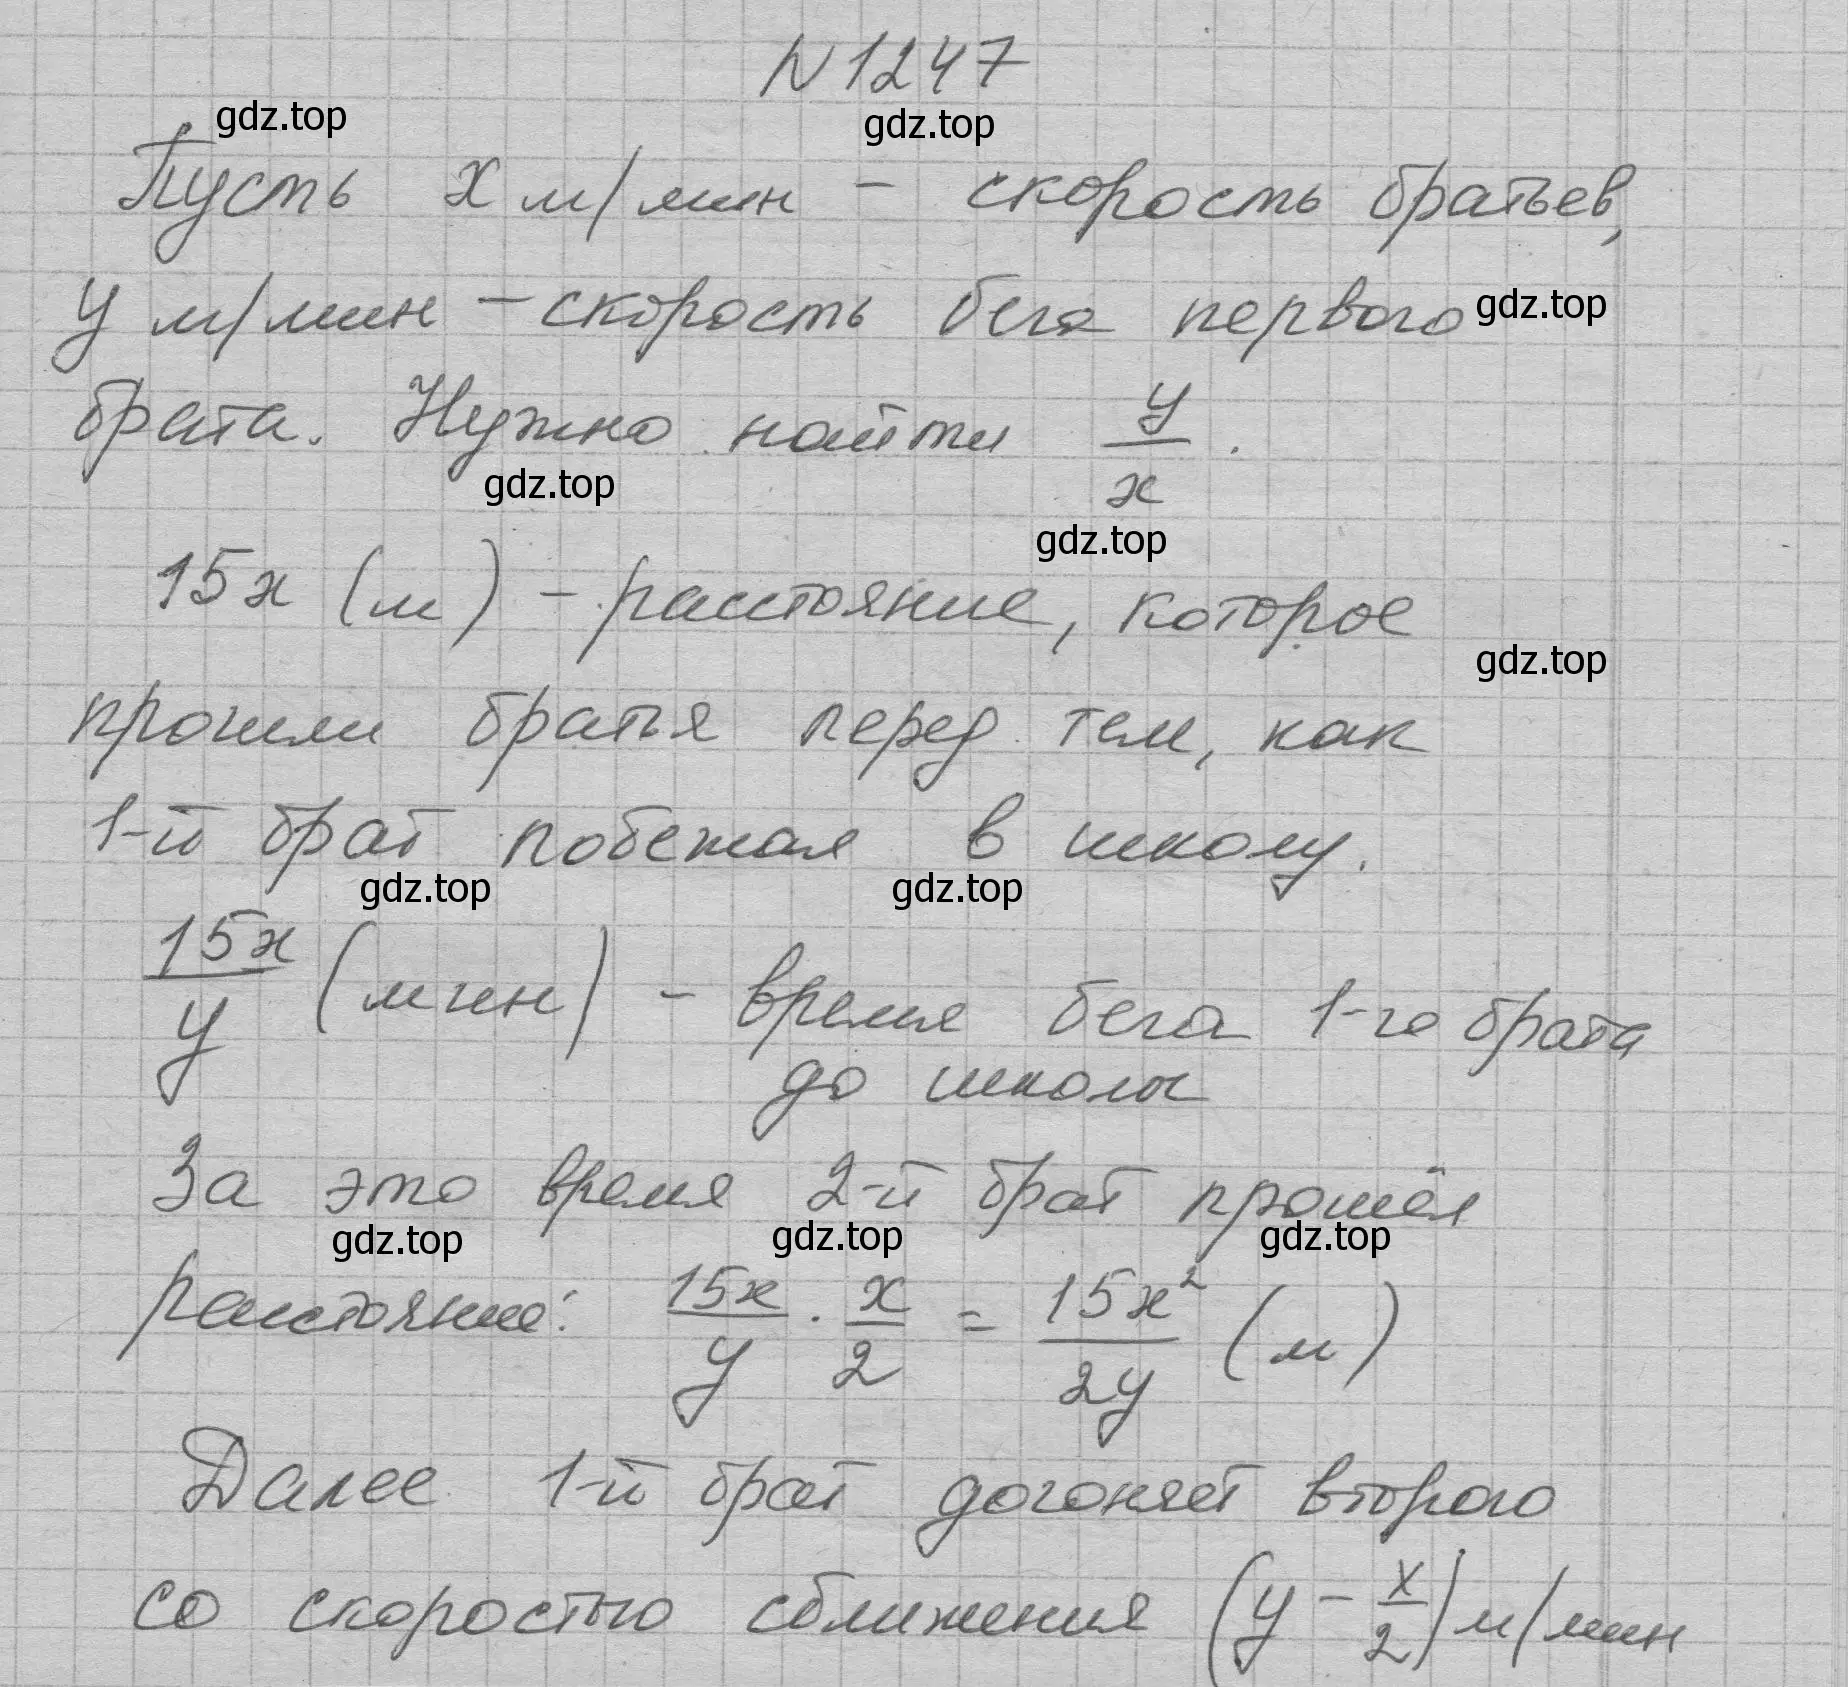 N 1247
gdz.top
gdz.top
Пусть x м/мин - скорость братьев,
y м/мин - скорость бега первого
gdz.top
брата. Нужно найти y/x.
gdz.top
gdz.top
15x (м) - расстояние, которое
gdz.top
прошли братья перед тем, как
1-й брат побежал в школу.
gdz.top
gdz.top
15x/y (мин) - время бега 1-го брата
до школы
За это время 2-й брат прошёл
gdz.top
gdz.top
gdz.top
расстояние: 15x/y · x/2 = 15x²/2y (м)
Далее 1-й брат догоняет второго
со скоростью сближения (y - x/2) м/мин